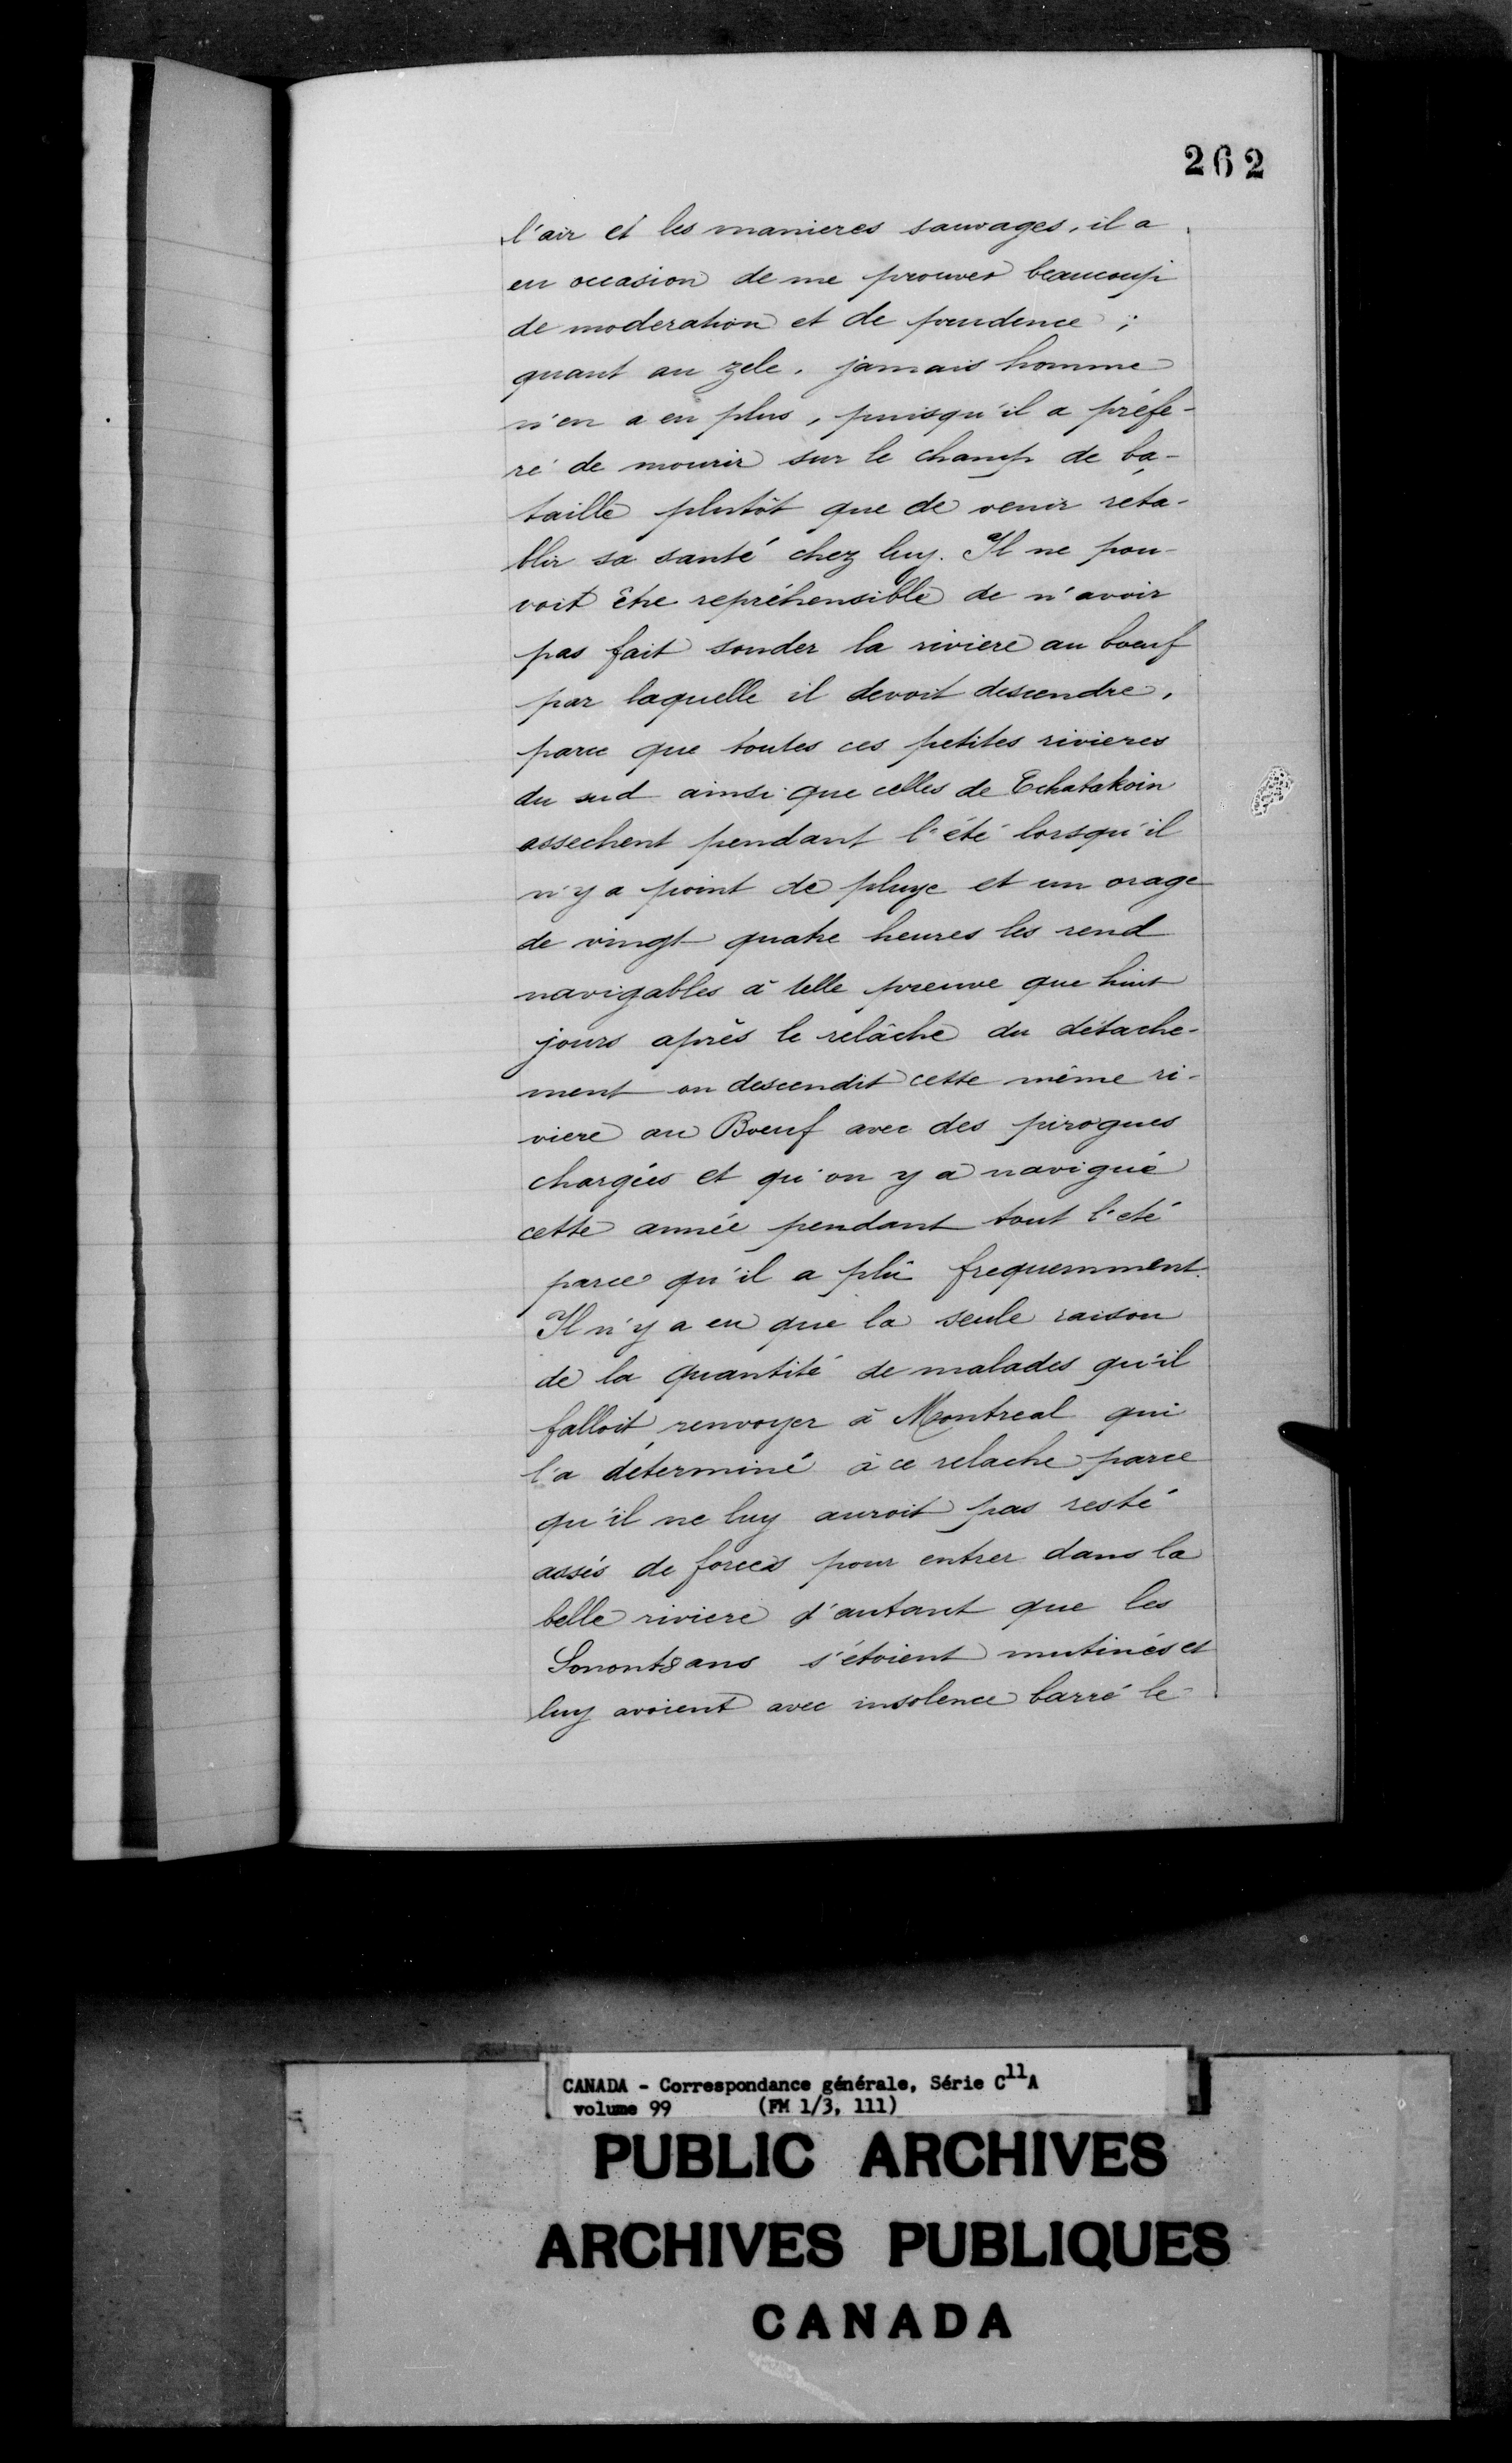 262
l'air et les manieres sauvages, il a
eu occasion de me prouver beaucoup
de moderation et de prudence ;
quant au zele, jamais homme
n'en a eu plus, puisqu'il a préfe-
ré de mourir sur le champ de ba-
taille plutôt que de venir réta-
blir sa santé chez luy. Il ne pou-
voit être repréhensible de n'avoir
pas fait sonder la riviere au boeuf
par laquelle il devoit descendre,
parce que toutes ces petites rivieres
du sud ainsi que celles de Tchatakoin
assechent pendant l'été lorsqu'il
n'y a point de pluye et un orage
de vingt quatre heures les rend
navigables à telle preuve que huit
jours après le relâche du détache-
ment on descendit cette même ri-
viere au Boeuf avec des pirogues
chargées et qu'on y a navigué
cette année pendant tout l'eté
parce qu'il a plû frequemment.
Il n'y a eu que la seule raison
de la quantité de malades qu'il
falloit renvoyer à Montreal qui
l'a déterminé à ce relache parce
qu'il ne luy auroit pas resté
assés de forces pour entrer dans la
belle riviere d'autant que les
Sonont8ans s'étoient mutinés et
luy avoient avec insolence barré le
CANADA - Correspondance générale, Série C11A
volume 99 (FM 1/3, 111)
PUBLIC ARCHIVES
ARCHIVES PUBLIQUES
CANADA